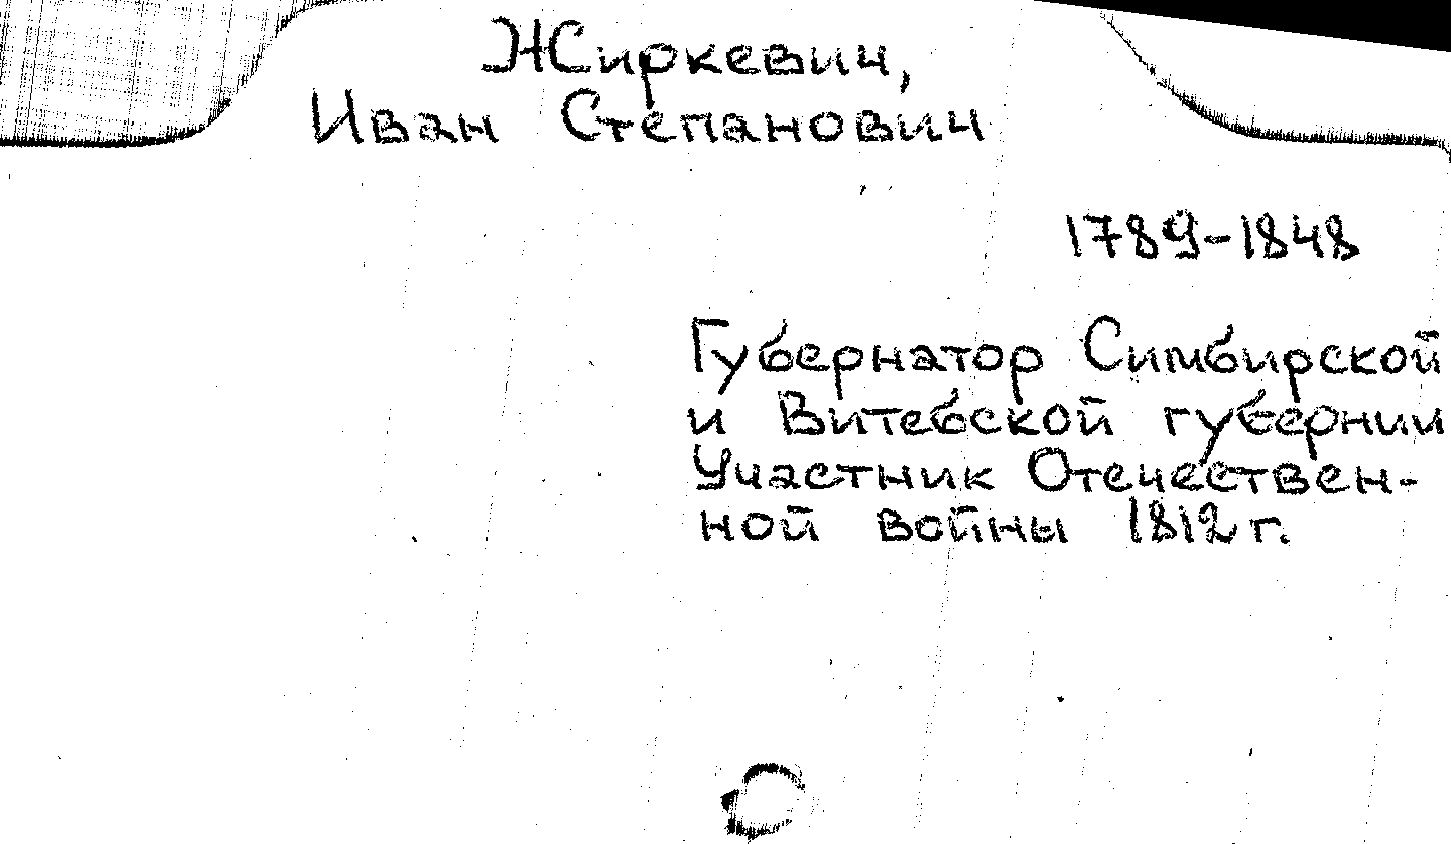 Жиркевич,
Иван Степанович
1789-1848
Губернатор Симбирской
и Витебской губернии
Участник Отечествен-
ной войны 1812 г.